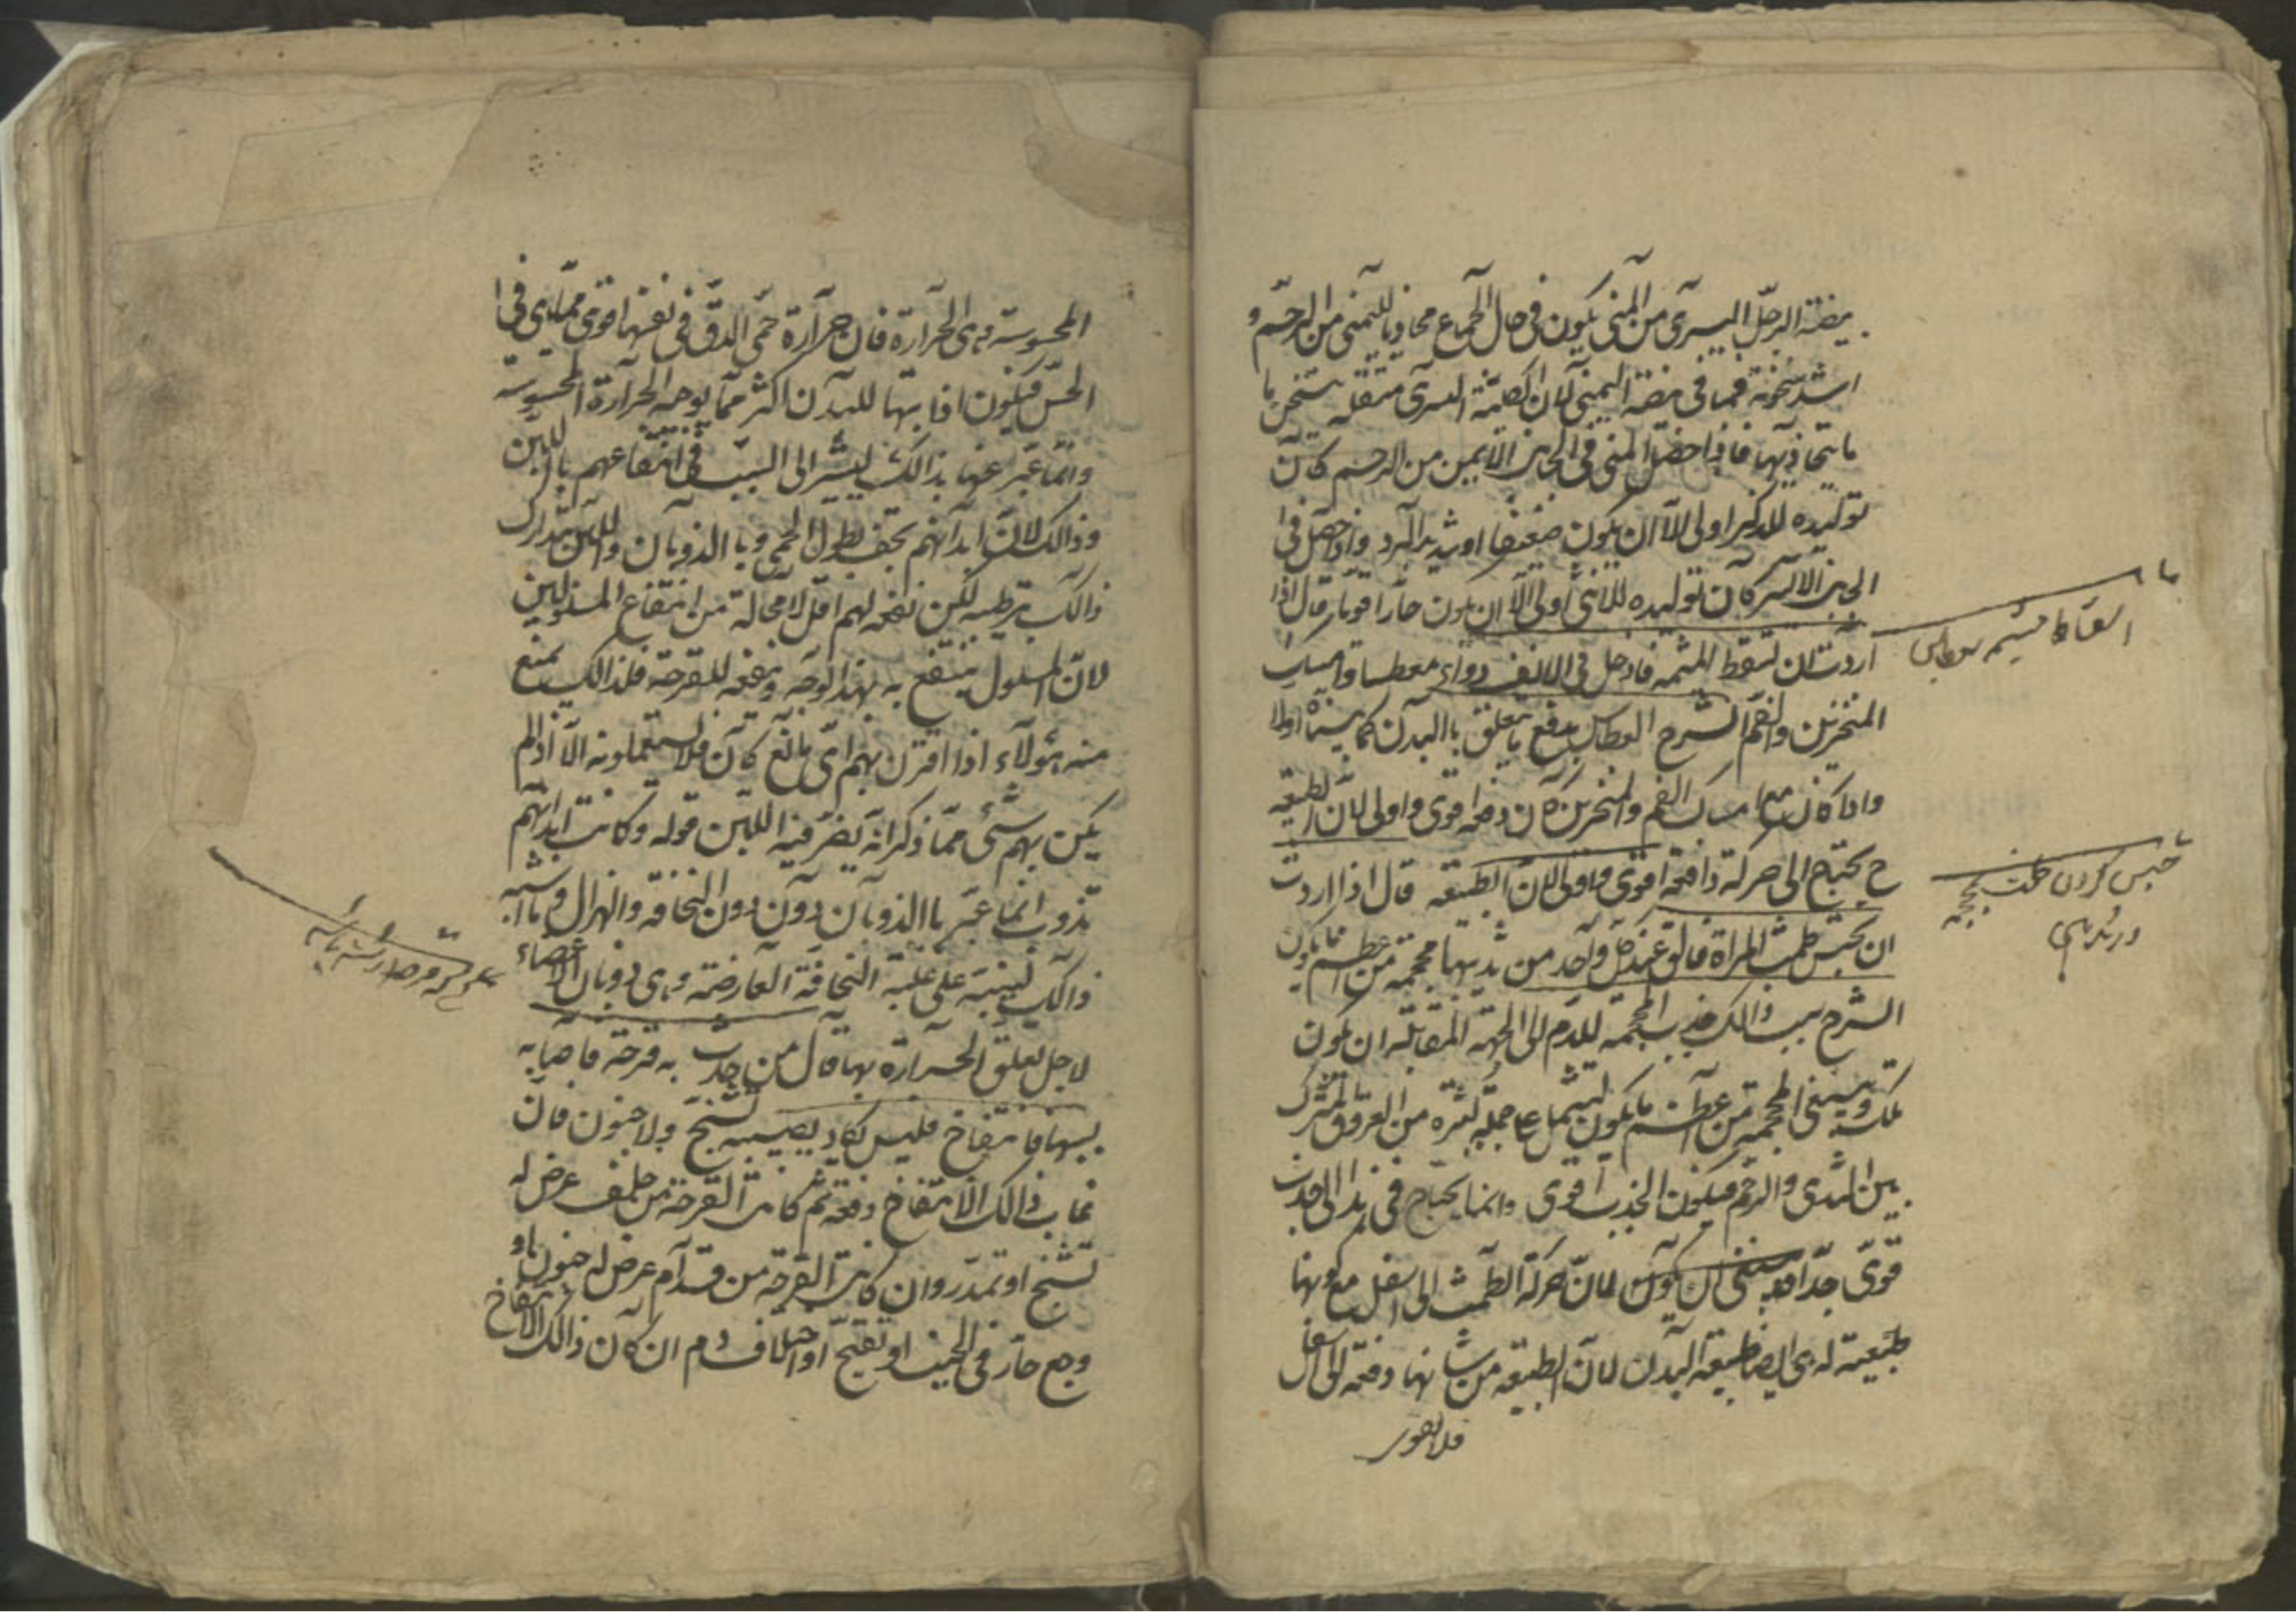 بيضة الرجل اليسرى من المنى يكون فى حال الجماع محاذيا لليمنى من الرحم و
اشد سخونة مما فى بيضة اليمنى لان الكلية اليسرى متقلة يسخن ما
ما يتحاذيها فاذا حصل المنى فى الجانب الايمن من الرحم كان
توليده للذكر اولى الا ان يكون ضعيفا او شديد البرد واذا حصل فى
الجانب الايسر كان توليده للانثى اولى الا ان يكون حارا قويا قال اذا
اردت ان تسقط المشيمه فادخل فى الانف دواء معطسا وامسك
المنخرين والفم الشرح العطاس يدفع ما يتعلق بالبدن كما بيناه اولا
واذا كان مع امساك الفم والمنخرين كان دفعه اقوى واولى لان الطبيعه
ح يحتاج الى حركة دافعه اقوى واولى لان الطبيعه قال اذا اردت
ان تحبس طمث المراة فالق عند كل واحد من ثدييها محجمه من اعظم ما يكون
الشرح سبب ذالك جذب المحجمه للدم الى الجهة المقابله ان يكون
تلك وينبغى المحجمه من اعظم ما يكون ليشتمل على جملة كثيره من العروق المشترك
بين الثدى والرحم فيكون الجذب اقوى وانما يحتاج فى هذا الى جذب
قوى جدا ينبغى ان يكون لان حركة الطمث الى اسفل مع كونها
طبيعية له هى ايضا طبيعة البدن لان الطبيعه من شانها دفعه الى اسفل
فلا يقوى
اسقاط مشيمه بعطاس
حبس كردن طمث بمحجمه
المحسوسة وهى الحرارة فان حرارة حمى الدق فى نفسها اقوى مما هى فى ا
الحس فيكون اذابتها للبدن اكثر مما يوجبه الحرارة المحسوسة
وانما عبر عنها بذالك ليشير الى السبب فى انتفاعهم باللبن
وذالك لان ابدانهم تجف بطول الحمى وبا الذوبان واللبن يتدارك
ذالك بترطيبه لكن نفعه لهم اقل لا محالة من انتفاع المسلولين
لان المسلول ينتفع به بهذا الوجه وبنفعه للقرحة فلذالك يمنع
منه هؤلاء اذا اقترن بهم اى مانع كان فلا يستعملونه الا اذا لم
يكن بهم شئ مما ذكر انه يضر فيه اللبن قوله وكانت ابدانهم
تذوب انما عبر با الذوبان دون النحافة والهزال وما اشبه
ذالك لينبه على غلبة النحافة العارضة وهى ذوبان الاعضاء
لاجل تعلق الحرارة بها قال من حدث به قرحة فاصابه
بسببها انتفاخ فليس يكاد يصيبه تشنج ولا جنون فان
غاب ذالك الانتفاخ دفعة ثم كانت القرحة من خلف عرض له
تشنج او تمدد وان كانت القرحة من قدام عرض له جنون او
وجع حار فى الجنب او تقيح او اختلاف دم ان كان ذالك الانتفاخ